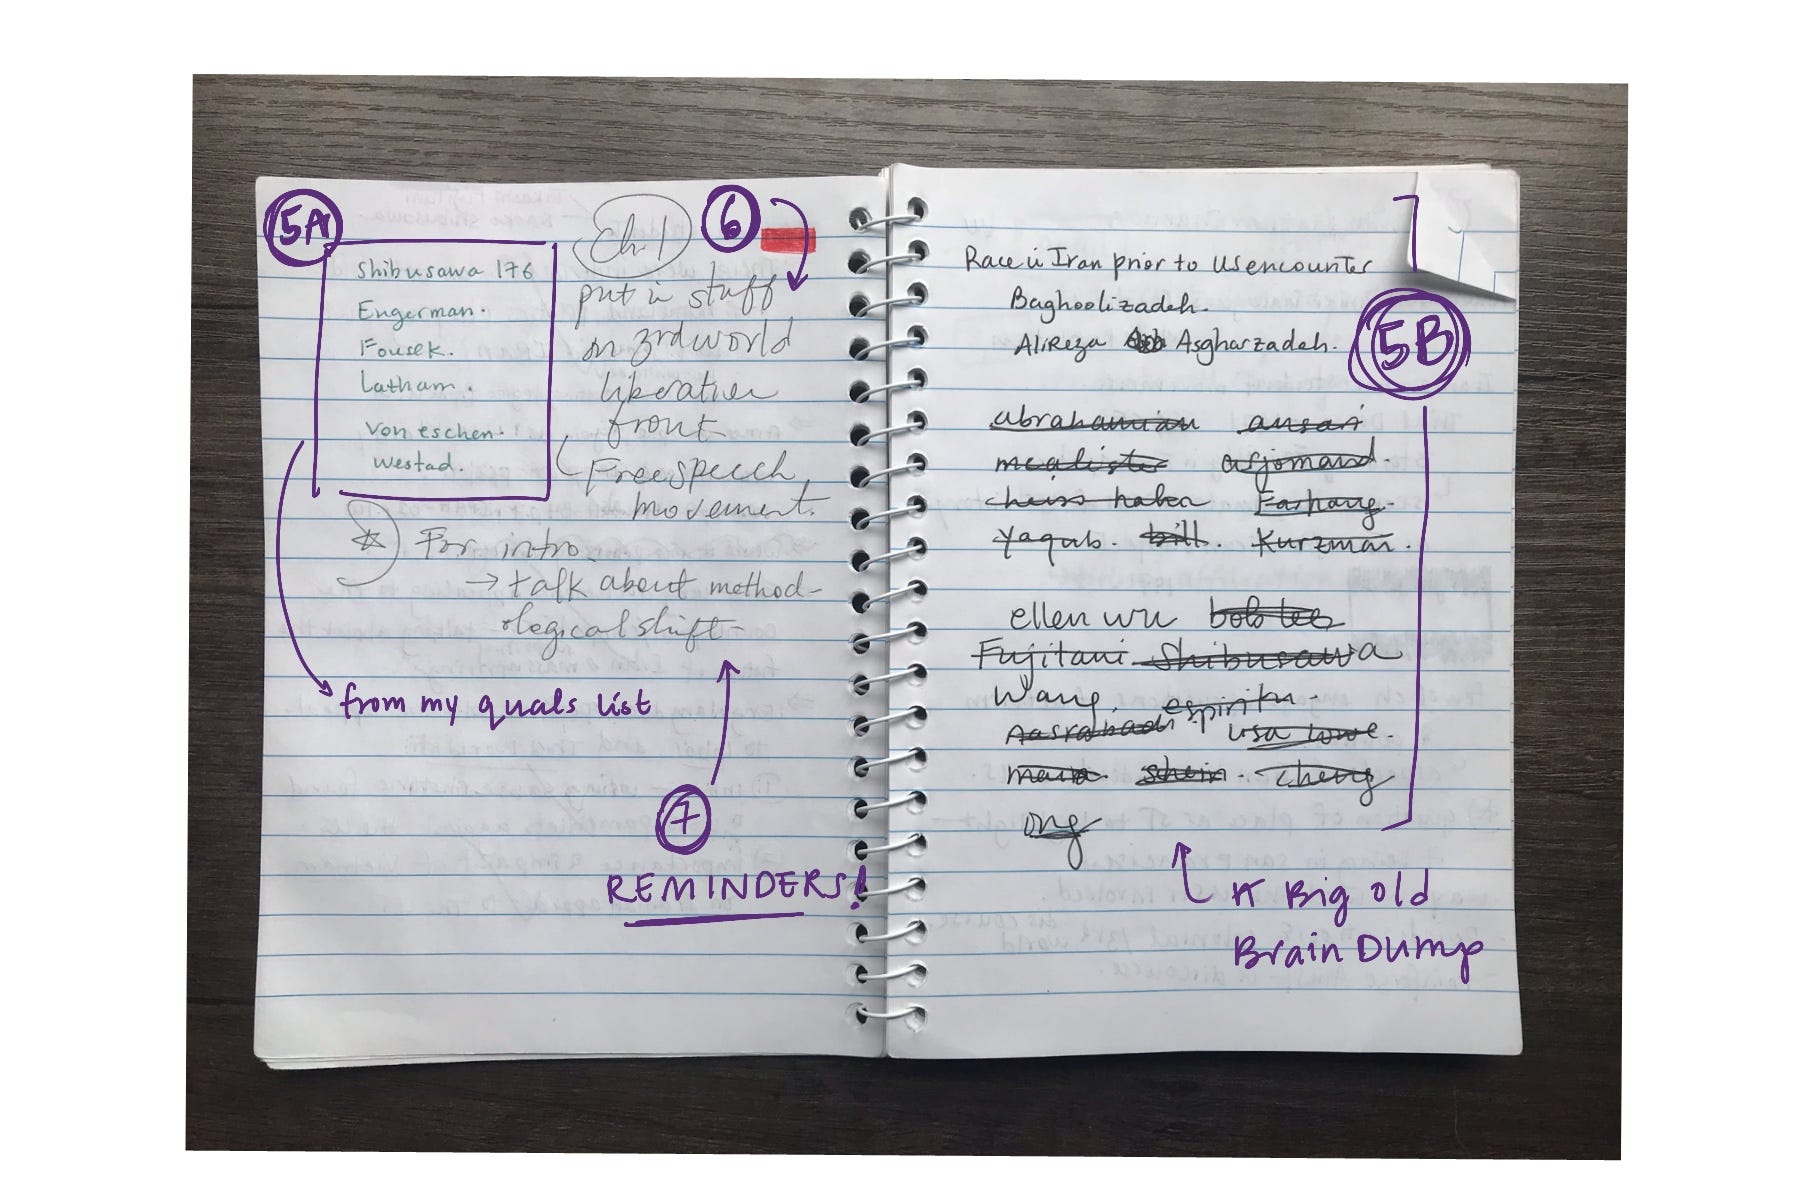 5A
Shibusawa 176
Engerman.
Fousek.
Latham.
Von eschen.
Westad.
from my quals list
Ch. 1
6
put in stuff
on 3rd world
liberation
front
Free speech
movement.
For intro
→ talk about method-
ological shift
7
REMINDERS!
Race in Iran prior to US encounter
Baghoolizadeh.
Alireza Asgharzadeh.
5B
abrahamian ansari
mcalister arjomand.
cheiss haben Farhang.
Yaqub. bill. Kurzman.
ellen wu bob lee
Fujitani Shibusawa
Wang espiritu.
Nasrabadi lisa lowe.
maira. shein. cheng
ong
A Big Old
Brain Dump